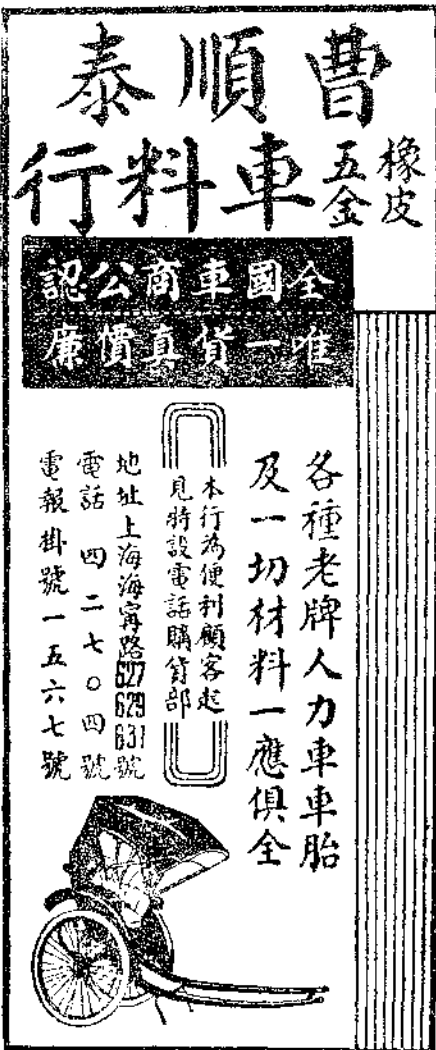 曹順泰
橡皮
五金
車料行
全國車商公認
唯一貨真價廉
各種老牌人力車車胎
及一切材料一應俱全
本行為便利顧客起
見特設電話購貨部
地址上海海甯路627 629 631號
電話 四二七〇四號
電報掛號一五六七號